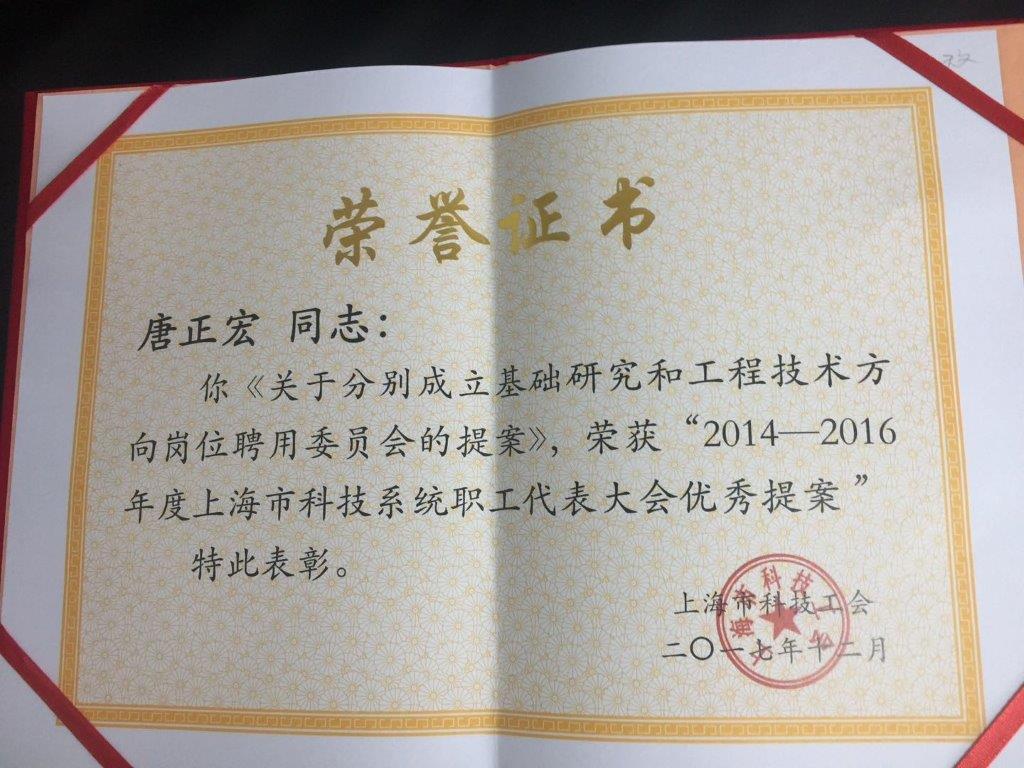 荣誉证书
唐正宏 同志：
你《关于分别成立基础研究和工程技术方
向岗位聘用委员会的提案》，荣获“2014—2016
年度上海市科技系统职工代表大会优秀提案”
特此表彰。
上海市科技工会
二〇一七年十二月